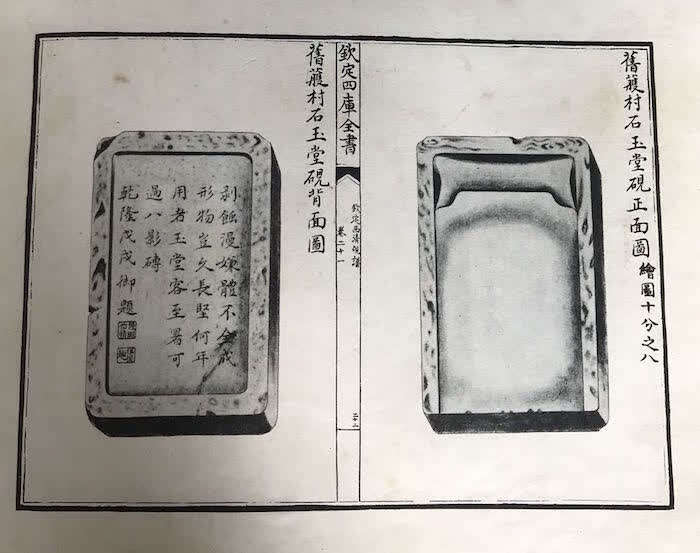 舊蠖村石玉堂硯正面圖
繪圖十分之八
欽定四庫全書
欽定西清硯譜
卷二十一
舊蠖村石玉堂硯背面圖
剥蝕漫嫌體不全成
形物豈久長堅何年
用者玉堂客至署可
過八影磚
乾隆戊戌御題